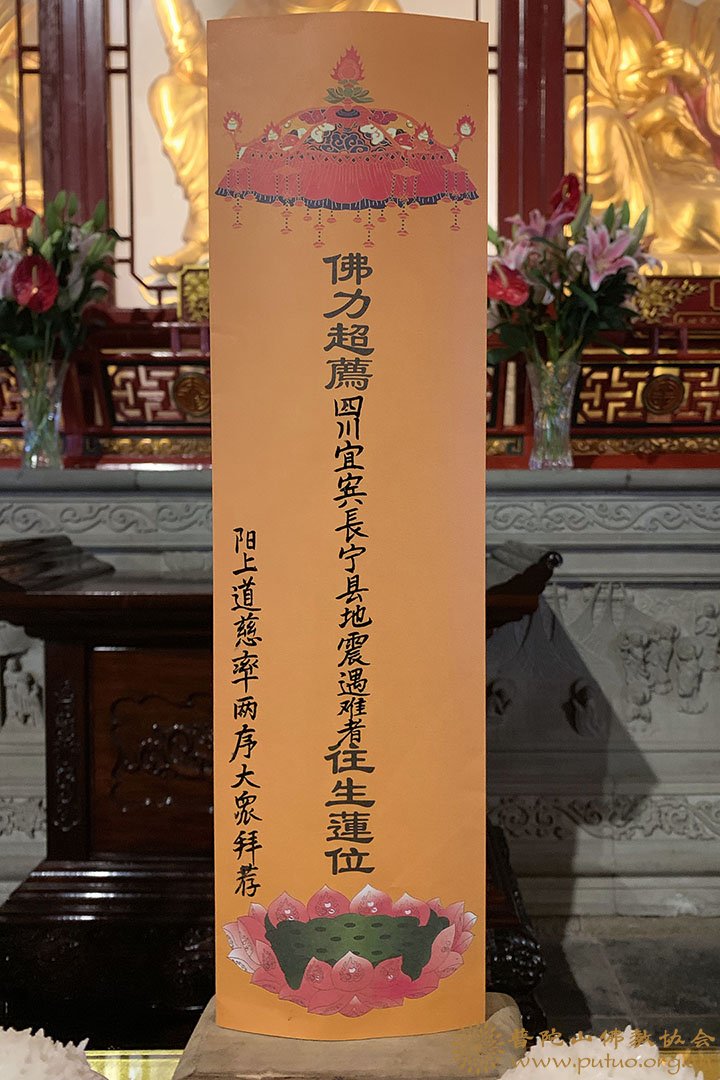 佛力超薦四川宜宾長宁县地震遇难者往生蓮位
阳上道慈率两序大眾拜荐
普陀山佛教协会
www.putuo.org.cn